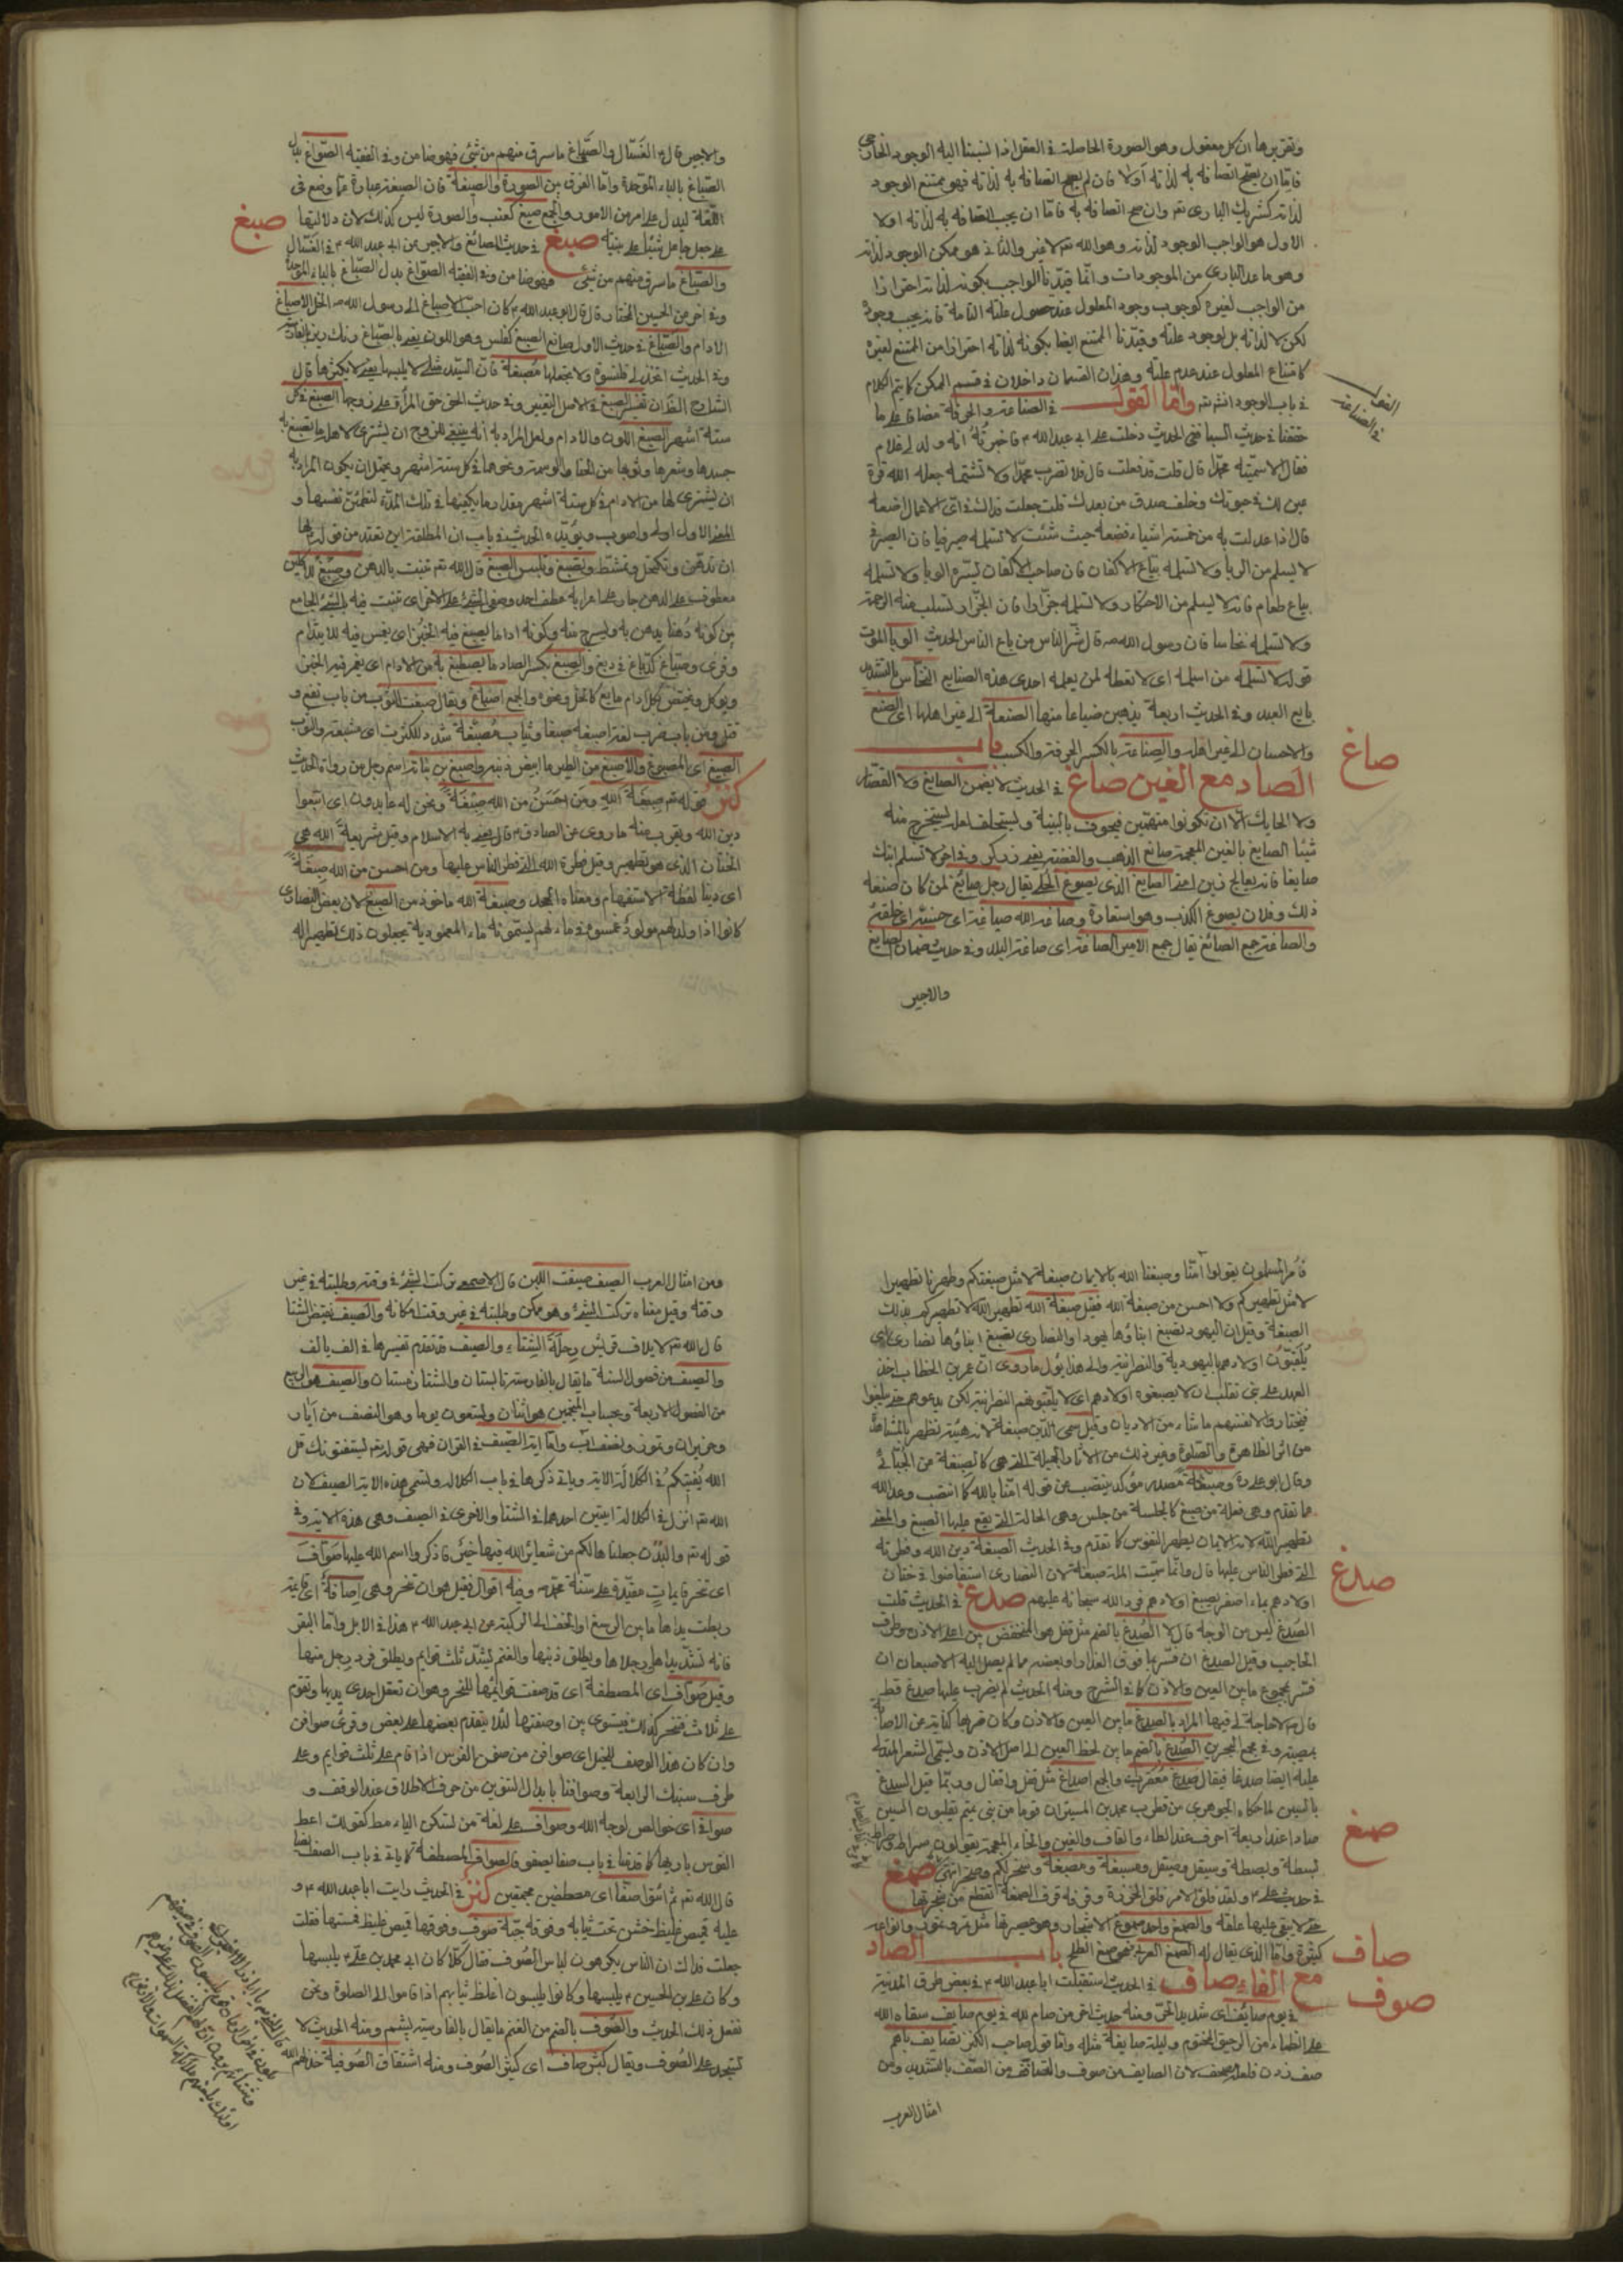 وتقريرها ان كل معقول وهو الصورة الحاصلة في العقل اذا نسبنا اليه الوجود الخارجي
فاما ان يصح اتصافه به لذاته اولا فان لم يصح اتصافه به لذاته فهو ممتنع الوجود
لذاته كشريك الباري تعم وان صح اتصافه به فاما ان يجب اتصافه به لذاته اولا
الاول هو الواجب الوجود لذاته وهو الله تعم لا غير والثاني هو ممكن الوجود لذاته
وهو ما عدا الباري من الموجودات وانما قيدنا الواجب بكونه لذاته احترازا
من الواجب لغيره كوجوب وجود المعلول عند حصول علته التامة فانه يجب وجوده
لكن لا لذاته بل لوجود علته وقيدنا الممتنع ايضا بكونه لذاته احترازا من الممتنع لغيره
كامتناع المعلول عند عدم علته وهذان القسمان داخلان في قسم الممكن كما يتم الكلام
في باب الوجود انش تعم واما القول في الصناعة والحرفة مضافا على ما
القول في الصناعة
حققنا في حديث السبا ففي الحديث دخلت على ابي عبد الله م فاخبرته انه ولد لي غلام
فقال الا سميته محمدا قال قلت قد فعلت قال فلا تضرب محمدا ولا تشتمه جعله الله قرة
عين لك في حيوتك وخلف صدق من بعدك قلت جعلت فداك في اي الاعمال اضعه
قال اذا عدلت به من خمسة اشياء فضعه حيث شئت لا تسلمه صيرفيا فان الصيرفي
لا يسلم من الربا ولا تسلمه بياع الاكفان فان صاحب الاكفان يسره الوبا ولا تسلمه
بياع طعام فانه لا يسلم من الاحتكار ولا تسلمه جزارا فان الجزار تسلب منه الرحمة
ولا تسلمه نخاسا فان رسول الله ص قال شر الناس من باع الناس الحديث الوبا الموت
قوله لا تسلمه من اسلمه اي لا تعطه لمن يعلمه احدى هذه الصنايع النخاس بالتشديد
بايع العبيد وفي الحديث اربعة يذهبن ضياعا منها الصنعة الى غير اهلها اي الصنع
والاحسان الى غير اهله والصناعة بالكسر الحرفة والكسب باب
صاغ
الصاد مع الغين صاغ في الحديث لا يضمن الصايغ ولا القصار
ولا الحايك الا ان يكونوا متهمين فيجوف بالبينة ويستحلف لعله يستخرج منه
شيئا الصايغ بالغين المعجمة صانع الذهب والفضة يعني زركر وفي اخر لا تسلم ابنك
صايغا فانه يعالج زين امتي الصايغ الذي يصوغ الحلي يقال رجل صائغ لمن كان صنعه
ذلك وفلان يصوغ الكذب وهو استعارة وصاغه الله صياغة اي حسنة اي خلقه
والصاغة جمع الصائغ يقال جمع الامير الصاغة اي صاغة البلد وفي حديث ضمان الصايغ
والاجير
والاجير قال م الغسال والصباغ ما سرق منهم من شيء فهو ضامن وفي الفقيه الصواغ بدل
الصباغ بالباء الموحدة واما الفرق بين الصورة والصيغة فان الصيغة عبارة عما وضع في
اللغة ليدل على امر من الامور والجمع صيغ كعنب والصورة ليس كذلك لان دلالتها
صبغ
على جعل جاعل شيئا على بنيانه صبغ في حديث الصائغ والاجير عن ابي عبد الله م في الغسال
والصباغ ما سرق منهم من شيء فهو ضامن وفي الفقيه الصواغ بدل الصباغ بالباء الموحدة
وفي اخر عن الحسين المختار قال قال ابو عبد الله م كان احب الاصباغ الى رسول الله ص الخل الاصباغ
الادام والصباغ في حديث الاول صانع الصبغ كفلس وهو اللون يعني بالصباغ رنك ريز بالفارسية
وفي الحديث اتخذ لي قلنسوة ولا تجعلها مصبغة فان السيد مثلي لا يلبسها يعني لا يكثرها قال
الشارح الفذان تفسير الصبغ في الاصل التغيير وفي حديث الحق حق المرأة على زوجها الصبغ في كل
ستة اشهر الصبغ اللون والادام ولعل المراد به انه ينبغي للزوج ان يشتري لاهله ما تصبغ به
جسدها وشعرها وثوبها من الحنا والوسمة ونحوها في كل ستة اشهر ويحتمل ان يكون المراد به
ان يشتري لها من الادام في كل ستة اشهر مقدار ما يكفيها في تلك المدة لتطمئن نفسها و
المعنى الاول اولى واصوب ويؤيده الحديث في باب ان المطلقة اين تعتد من قوله لها
ان تدهن وتكتحل وتمتشط وتصبغ وتلبس الصبغ قال الله تعم تنبت بالدهن وصبغ للآكلين
معطوف على الدهن جار على اعرابه عطف احد وصفي الشيء على الاخر اي تنبت فيه بالشيء الجامع
بين كونه دهنا يدهن به ويسرج منه وكونه اداما يصبغ فيه الخبز اي يغمس فيه للايتدام
وقرئ وصباغ كدباغ في دبغ والصبغ بكسر الصاد ما يصطبغ به من الادام اي يغمر فيه الخبز
ويؤكل ويختص بكل ادام مايع كالخل ونحوه والجمع اصباغ ويقال صبغت الثوب من باب نفع و
قتل ومن باب ضرب لغة اصبغه صبغا وثياب مصبغة شدد للكثرة اي مشبعة والثوب
الصبغ اي المصبوغ والاصبغ من الطير ما ابيض ذنبه واصبغ بن نباته اسم رجل من رواة الحديث
كنز قوله تعم صبغة الله ومن احسن من الله صبغة ونحن له عابدون اي اتبعوا
دين الله ويقرب منه ما روي عن الصادق م قال يعني به الاسلام وقيل شريعة الله هي
الختان الذي هو تطهير وقيل فطرة الله التي فطر الناس عليها ومن احسن من الله صبغة
اي دينا لفظة الاستفهام ومعناه الجحد وصبغة الله ماخوذ من الصبغ لان بعض النصارى
كانوا اذا ولد لهم مولود غمسوه في ماء لهم يسمونه ماء المعمودية يجعلون ذلك تطهيرا له
فامر المسلمون بقولوا آمنا وصبغنا الله بالايمان صبغة لا مثل صبغتكم وطهرنا تطهيرا
لا مثل تطهيركم ولا احسن من صبغة الله فقيل صبغة الله تطهير الله لا تطهيركم بذلك
الصبغة وقيل ان اليهود تصبغ ابناؤها يهودا والنصارى تصبغ ابناؤها نصارى اي
يلقنون اولادهم اليهودية والنصرانية والى هذا يؤل ما روي ان عمر بن الخطاب اخذ
العهد على بني تغلب ان لا يصبغوه اولادهم اي لا يلقنونهم النصرانية لكن يدعوهم حتى يبلغوا
فيختاروا لانفسهم ما شاء من الاديان وقيل سمي الدين صبغة لانه هيئة تظهر بالمشاهدة
من اثر الطاهرة والصلوة وغير ذلك من الاثار الجميلة التي هي كالصبغة من الجبائي
وقال ابو علي وصبغة مصدر مؤكد ينتصب عن قوله امنا بالله كما انتصب وعد الله
ما تقدم وهي فعلة من صبغ كالجلسة من جلس وهي الحالة التي يقع عليها الصبغ والمعنى
تطهير الله لان الايمان يطهر النفوس كما تقدم وفي الحديث الصبغة دين الله وفطرته
صدغ
التي فطر الناس عليها قال وانما سميت الملة صبغة لان النصارى استعاضوا في ختان
اولادهم بماء اصفر يصبغ اولادهم فرد الله سبحانه عليهم صدغ في الحديث قلت
الصدغ ليس من الوجه قال لا الصدغ بالضم مثل قفل هو المنخفض بين اعلى الاذن وطرف
الحاجب وقيل الصدغ ان فسر بما فوق العذار او بعضه مما لم يصل اليه الاصبعان ان
فسر بمجموع ما بين العين والاذن كما في الشرح ومنه الحديث لم يضرب عليها صدغ قط
قال م لا حاجة لي فيها المراد بالصدغ ما بين العين والاذن وكان ضربها كناية عن الاصابة
بمصيبة وفي مجمع البحرين الصدغ بالضم ما بين لحظ العين الى اصل الاذن ويسمى الشعر المتدلي
عليه ايضا صدغا فيقال صدغ معقرب والجمع اصداغ مثل قفل واقفال وربما قيل السدغ
بالسين لما حكاه الجوهري عن قطرب محمد بن المستنير ان قوما من بني تميم يقلبون السين
صمغ
صادا عند اربعة احرف عند الطاء والقاف والغين والخاء المعجمة يقولون صراط وسراط
بسطة وبصطة وسيقل وصيقل ومسبغة ومصبغة وسخر لكم وصخر انتهى صمغ
في حديث علي م ولقد فلق الامر فلق الخرزة وقرفه قرف الصمغة اي تقطع من شجرتها
حتى لا يبقى عليها علقة والصمغ واحد صموغ الاشجار وهو عصيرتها مثل بثره ونحوه وانواعه
صاف
كثيرة واما الذي يقال له الصمغ العربي فهو صمغ الطلح باب الصاد
صوف
مع الفاء صاف في الحديث استقبلت ابا عبد الله م في بعض طرق المدينة
في يوم صائف اي شديد الحر ومنه حديث اخر من صام لله في يوم صايف سقاه الله
على الظماء من الرحيق المختوم وليلة صايفة مثله واما قول صاحب الكنز تصايف باهم
صف زدن فلعله مصحف لان الصايف من صوف والتصافف من الصف بالتشديد ومن
امثال العرب
ومن امثال العرب الصيف ضيعت اللبن قال الاصمعي تركت الشيء في وقته وطلبته في غير
وقته وقيل معناه تركت الشيء وهو ممكن وطلبته في غير وقت امكانه والصيف نقيض الشتا
قال الله تعم لايلاف قريش رحلة الشتاء والصيف قد تقدم تفسيرها في الف بالف
والصيف من فصول السنة ما يقال بالفارسية تابستان والشتا زمستان والصيف هو الربع
من الفصول الاربعة وبحساب المنجمين هو اثنان وتسعون يوما وهو النصف من آيار
وحزيران وتموز ونصف آب واما اية الصيف في القران فهي قوله تعم يستفتونك قل
الله يفتيكم في الكلالة الاية وياتي ذكرها في باب الكلالة وتسمى هذه الاية الصيف لان
الله تعم انزل في الكلالة ايتين احدهما في الشتا والاخرى في الصيف وهي هذه الاية وفي
قوله تعم والبدن جعلناها لكم من شعائر الله فيها خير فاذكروا اسم الله عليها صواف
اي تنحر قايمات مقيدة على سنة محمد ص وفيه اقوال فقيل هو ان تنحر وهي صافة اي قايمة
ربطت يداها ما بين الرسغ او الخف الى الركبة عن ابي عبد الله م هذا في الابل واما البقر
فانه تشد يداها ورجلاها ويطلق ذنبها والغنم يشد ثلث قوايم ويطلق فرد رجل منها
وقيل صواف اي المصطفة اي قد صفت قوايمها للنحر وهو ان تعقل احدى يديها وتقوم
على ثلاث فتنحر كذلك فيستوي بين اوصفتها لئلا يتقدم بعضها على بعض وقرئ صوافن
وان كان هذا الوصف للخيل اي صوافن من صفن الفرس اذا قام على ثلث قوايم وعلى
طرف سنبك الرابعة وصوافنا بابدال التنوين من حرف الاطلاق عند الوقف و
صوافي اي خوالص لوجه الله وصواف على لغة من تسكن الياء مط كقولك اعط
القوس باريها كما قدمنا في باب صفا يصفو فالصواف المصطفة كما ياتي في باب الصف ايضا
قال الله تعم ثم ائتوا صفا اي مصطفين مجتمعين كنز في الحديث رايت ابا عبد الله م و
عليه قميص غليظ خشن تحت ثيابه وفوقه جبة صوف وفوقها قميص غليظ فمسستها فقلت
جعلت فداك ان الناس يكرهون لباس الصوف فقال كلا كان ابي محمد بن علي م يلبسها
وكان علي بن الحسين م يلبسها وكانوا يلبسون اغلظ ثيابهم اذا قاموا الى الصلوة ونحن
نفعل ذلك الحديث والصوف بالضم من الغنم ما يقال بالفارسية پشم ومنه الحديث لا
تسجد على الصوف ويقال كبش صاف اي كثير الصوف ومنه اشتقاق الصوفية خذلهم الله